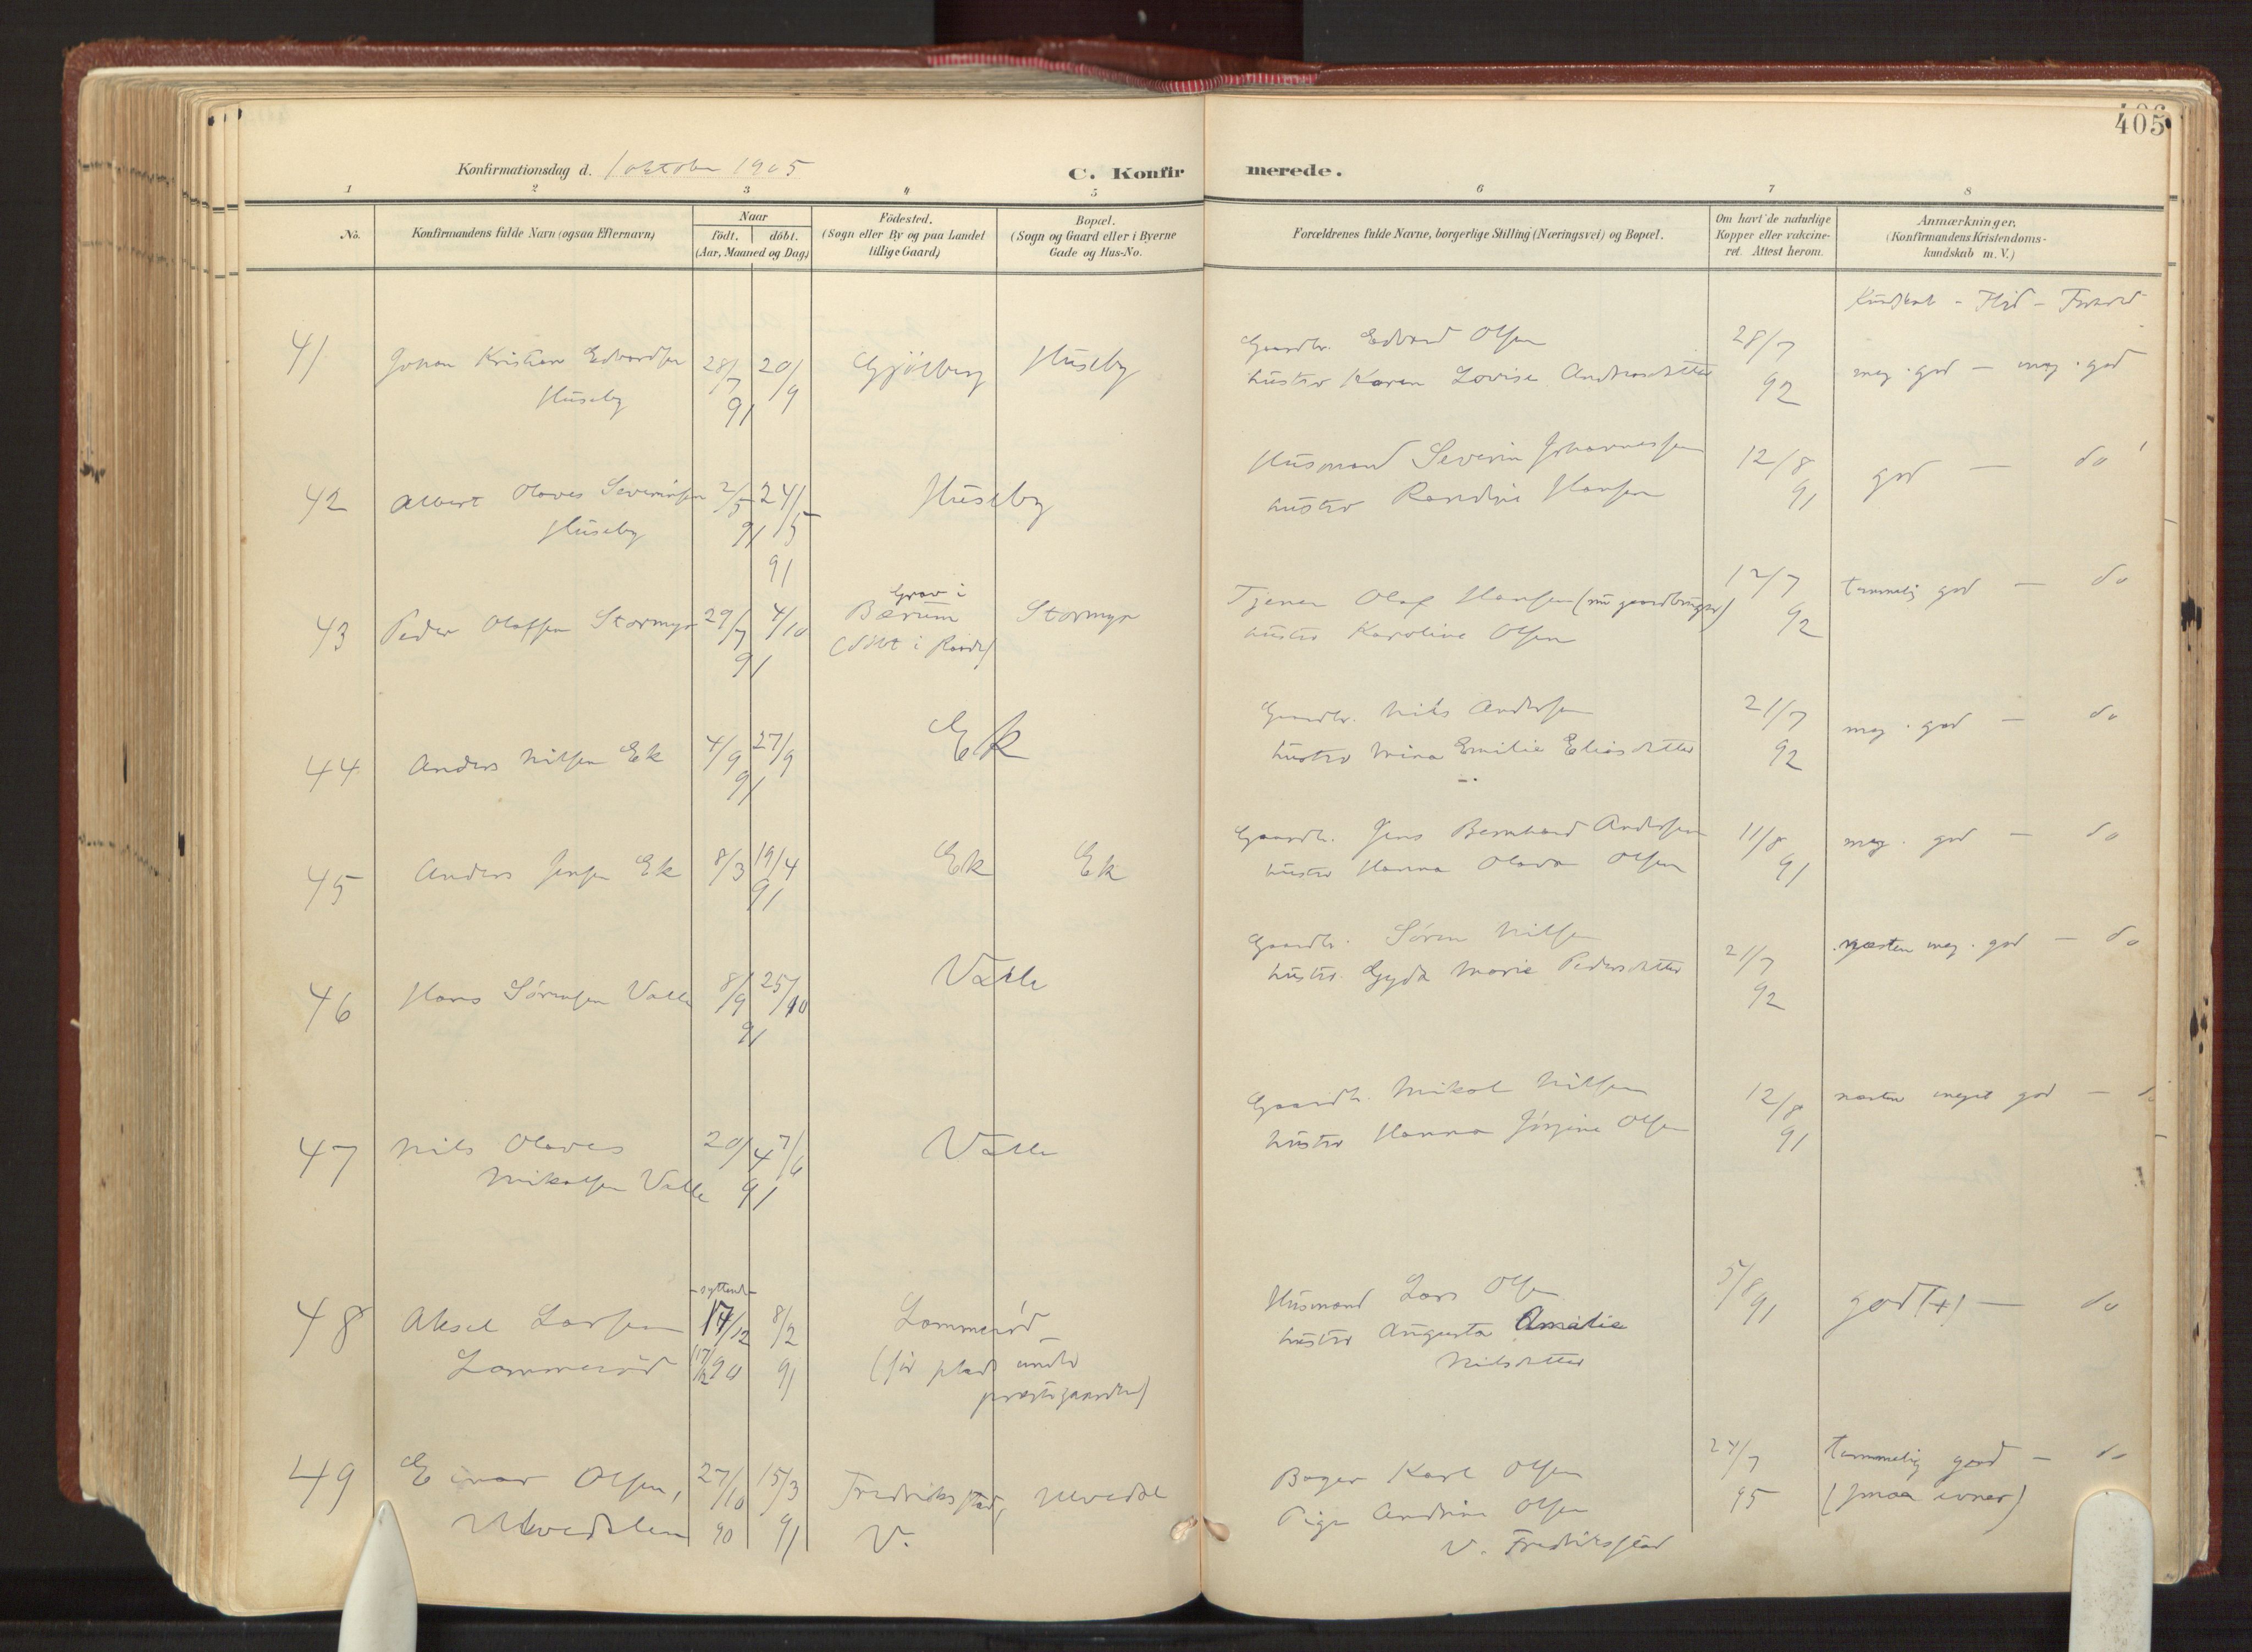 405
Konfirmationsdag d. 1 oktober 1905
C. Konfirmerede.
1 2 3 4 5 6 7 8
No.
Konfirmandens fulde Navn (ogsaa Efternavn)
Naar
födt. döbt.
(Aar, Maaned og Dag)
Födested.
(Sogn eller By og paa Landet
tillige Gaard)
Bopæl.
(Sogn og Gaard eller i Byerne
Gade og Hus-No.
Forældrenes fulde Navne, borgerlige Stilling (Næringsvei) og Bopæl.
Om havt de naturlige
Kopper eller vakcine-
ret. Attest herom.
Anmærkninger.
(Konfirmandens Kristendoms-
kundskab m. V.)
Kundskab - Flid - Forhold
41 Johan Kristian Edvardsen
Huseby
28/7 91 20/9
Gjölberg Huseby
Gaardbr. Edvard Olsen
hustro Karen Lovise Andreasdatter
28/7 92
meg. god - meg. god
42 Albert Olaves Severinsen
Huseby
2/5 91 24/5 91
Huseby
Husmand Severin Johannessen
hustro Randine Hansen
12/8 91
god - do
43 Peder Olafsen Stormyr
29/7 91 4/10
Grav i
Bærum
(döbt i Raade)
Stormyr
Tjener Olaf Hansen (nu gaardbruger)
hustro Karoline Olsen
12/7 92
temmelig god - do
44 Anders Nilsen Ek
4/9 91 27/9
Ek
Gaardbr. Nils Andersen
hustro Mina Emilie Eliasdatter
21/7 92
meg. god - do
45 Anders Jensen Ek
8/3 19/4 91
Ek Ek
Gaardbr. Jens Bernhard Andersen
hustro Hanna Olava Olsen
11/8 91
meg. god - do
46 Hans Sörensen Valle
8/9 91 25/10
Valle
Gaardbr. Sören Nilsen
hustro Gyda Marie Pedersdatter
21/7 92
næsten meg. god - do
47 Nils Olaves
Mikalsen Valle
20/4 91 7/6
Valle
Gaardbr. Mikal Nilsen
hustro Hanna Jörgine Olsen
12/8 91
næsten meget god -
48 Aksel Larsen
Lommeröd
syttende
17/12 90 17/12 8/2 91
Lommeröd
(för plads under
prestegaarden)
Husmand Lars Olsen
hustro Augusta Amalie
Nilsdatter
5/8 91
god (+) - do
49 Einar Olsen,
Ulvedalen
27/10 90 15/3 91
Fredriksstad, Ulvedal
V.
Bager Karl Olsen
Pige Andrine Olsen
V. Fredriksstad
24/7 95
temmelig god - do
(smaa evner)